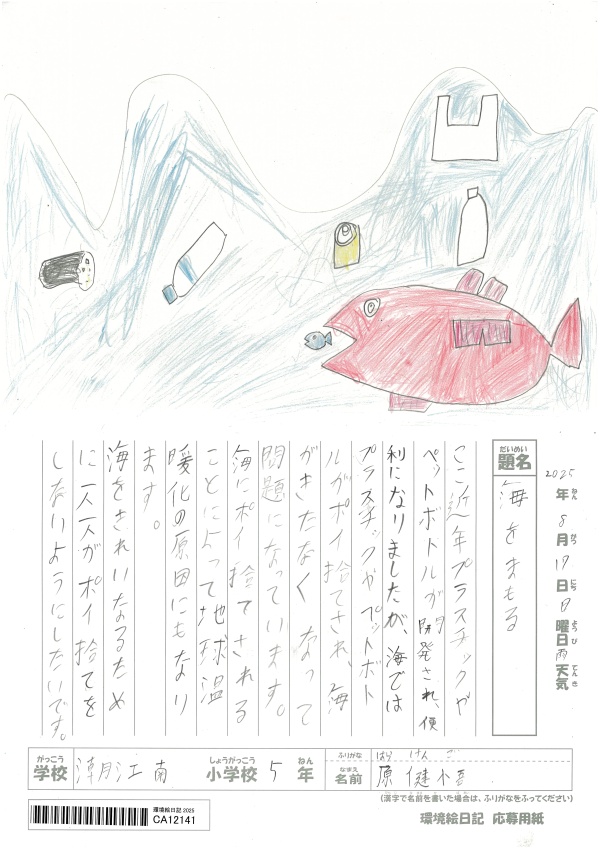 2025年8月17日日曜日雨天気
ねん がつ にち ようび てんき
だいめい
題名
海をまもる
ここ近年プラスチックや
ペットボトルが開発され、便
利になりましたが、海では
プラスチックやペットボト
ルがポイ捨てされ、海
がきたなくなって
問題になっています。
海にポイ捨てされる
ことによって地球温
暖化の原因にもなり
ます。
海をきれいなるため
に一人一人がポイ捨てを
しないようにしたいです。
がっこう
学校
潮江南
しょうがっこう
小学校
5
ねん
年
ふりがな
はら けんご
なまえ
名前
原 健小吾
(漢字で名前を書いた場合は、ふりがなをふってください)
環境絵日記 2025
CA12141
環境絵日記 応募用紙